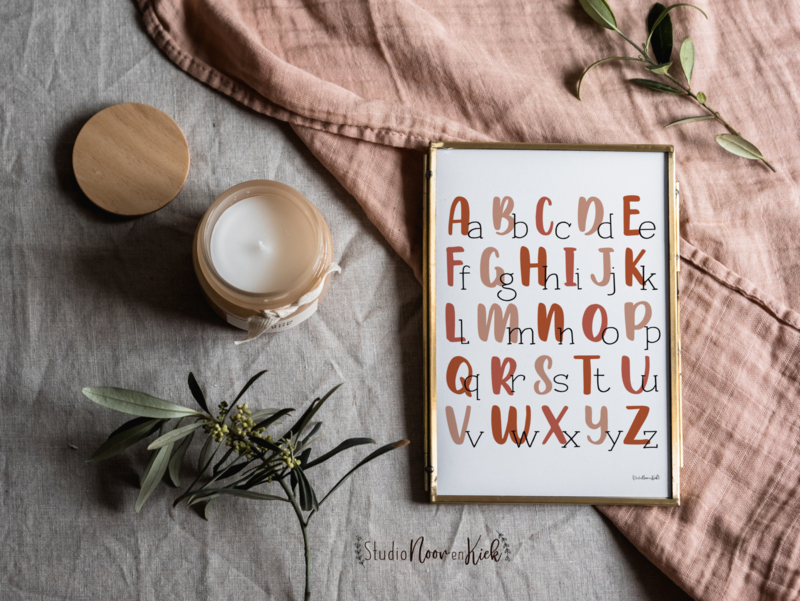 Aa Bb Cc Dd Ee
Ff Gg Hh Ii Jj Kk
Ll Mm Nn Oo Pp
Qq Rr Ss Tt Uu
Vv Ww Xx Yy Zz
Studio Noor en Kiek